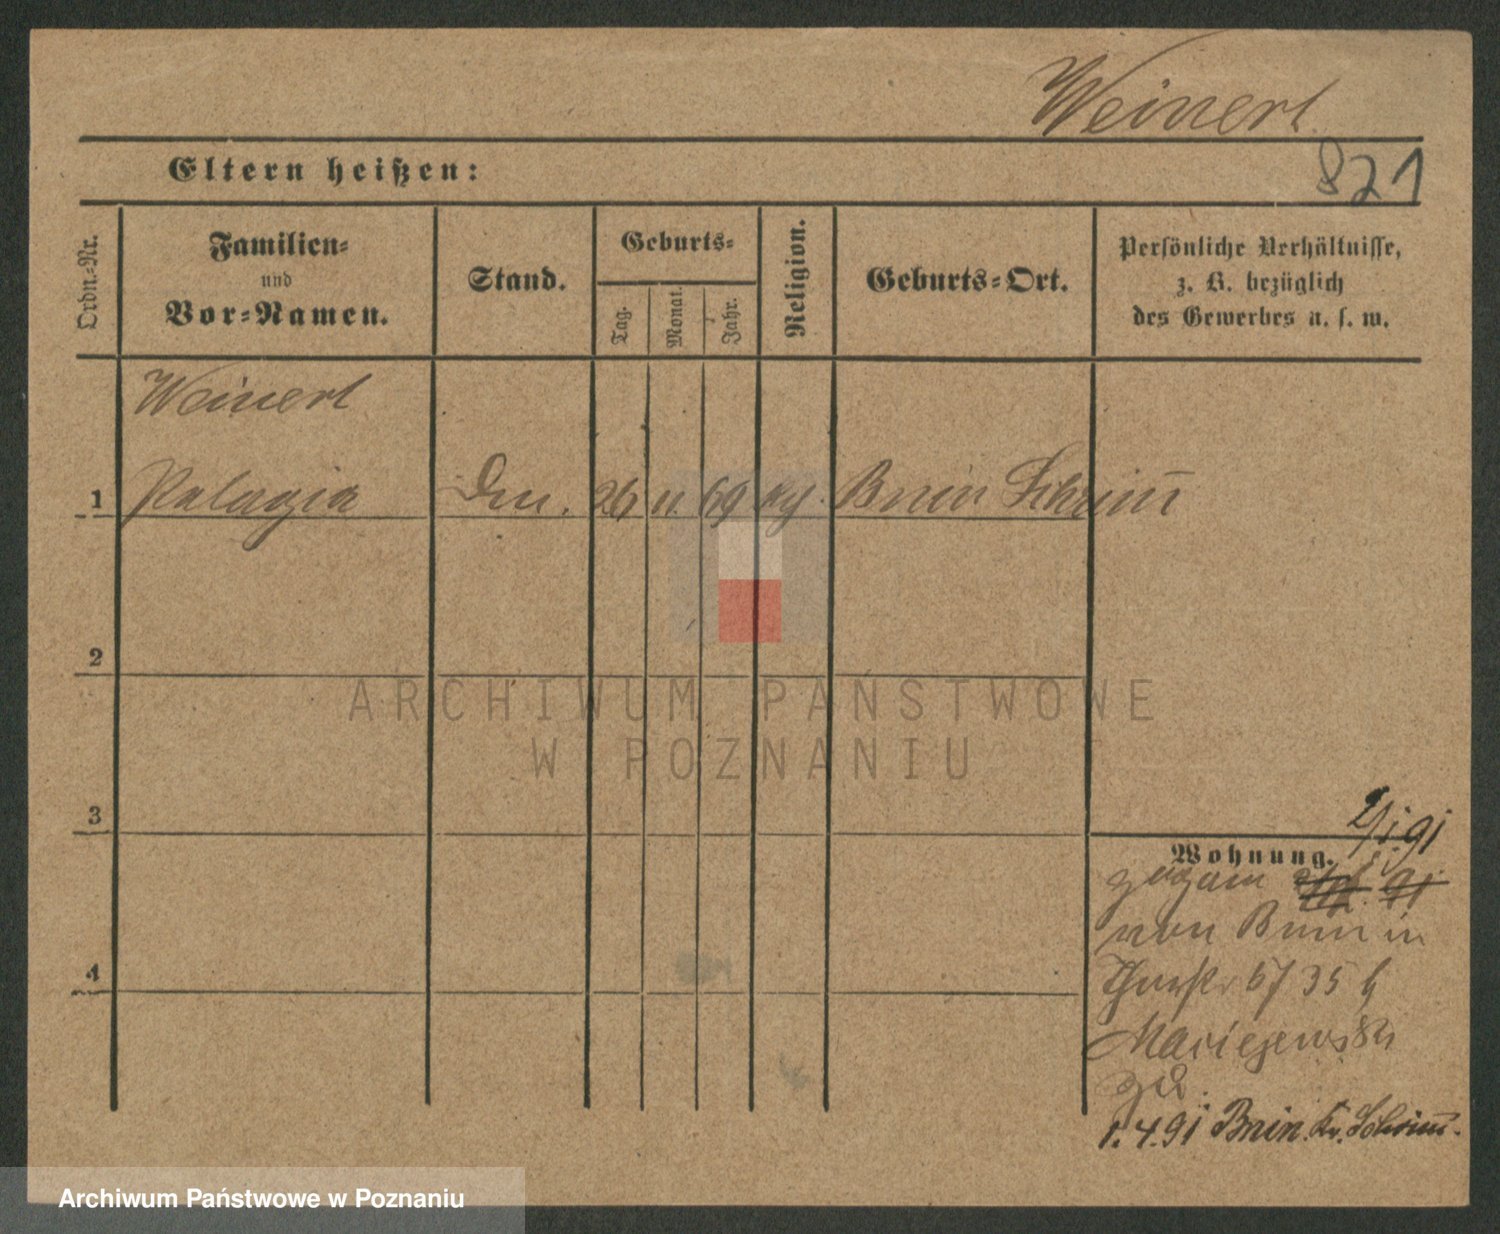 Weinert
Eltern heißen:
821
Ordn.-Nr.
Familien-
und
Vor-Namen.
Stand.
Geburts-
Tag.
Monat.
Jahr.
Religion.
Geburts-Ort.
Persönliche Verhältnisse,
z. B. bezüglich
des Gewerbes u. s. w.
Weinert
1 Pelagia 26 11. 69 Bnin Schrim̄
2
3
4
2/1. 91
Wohnung.
von Bnin in
67 35
zu
1.4.91 Bnin. Kr. Schrim̄.
ARCHIWUM PAŃSTWOWE
W POZNANIU
Archiwum Państwowe w Poznaniu